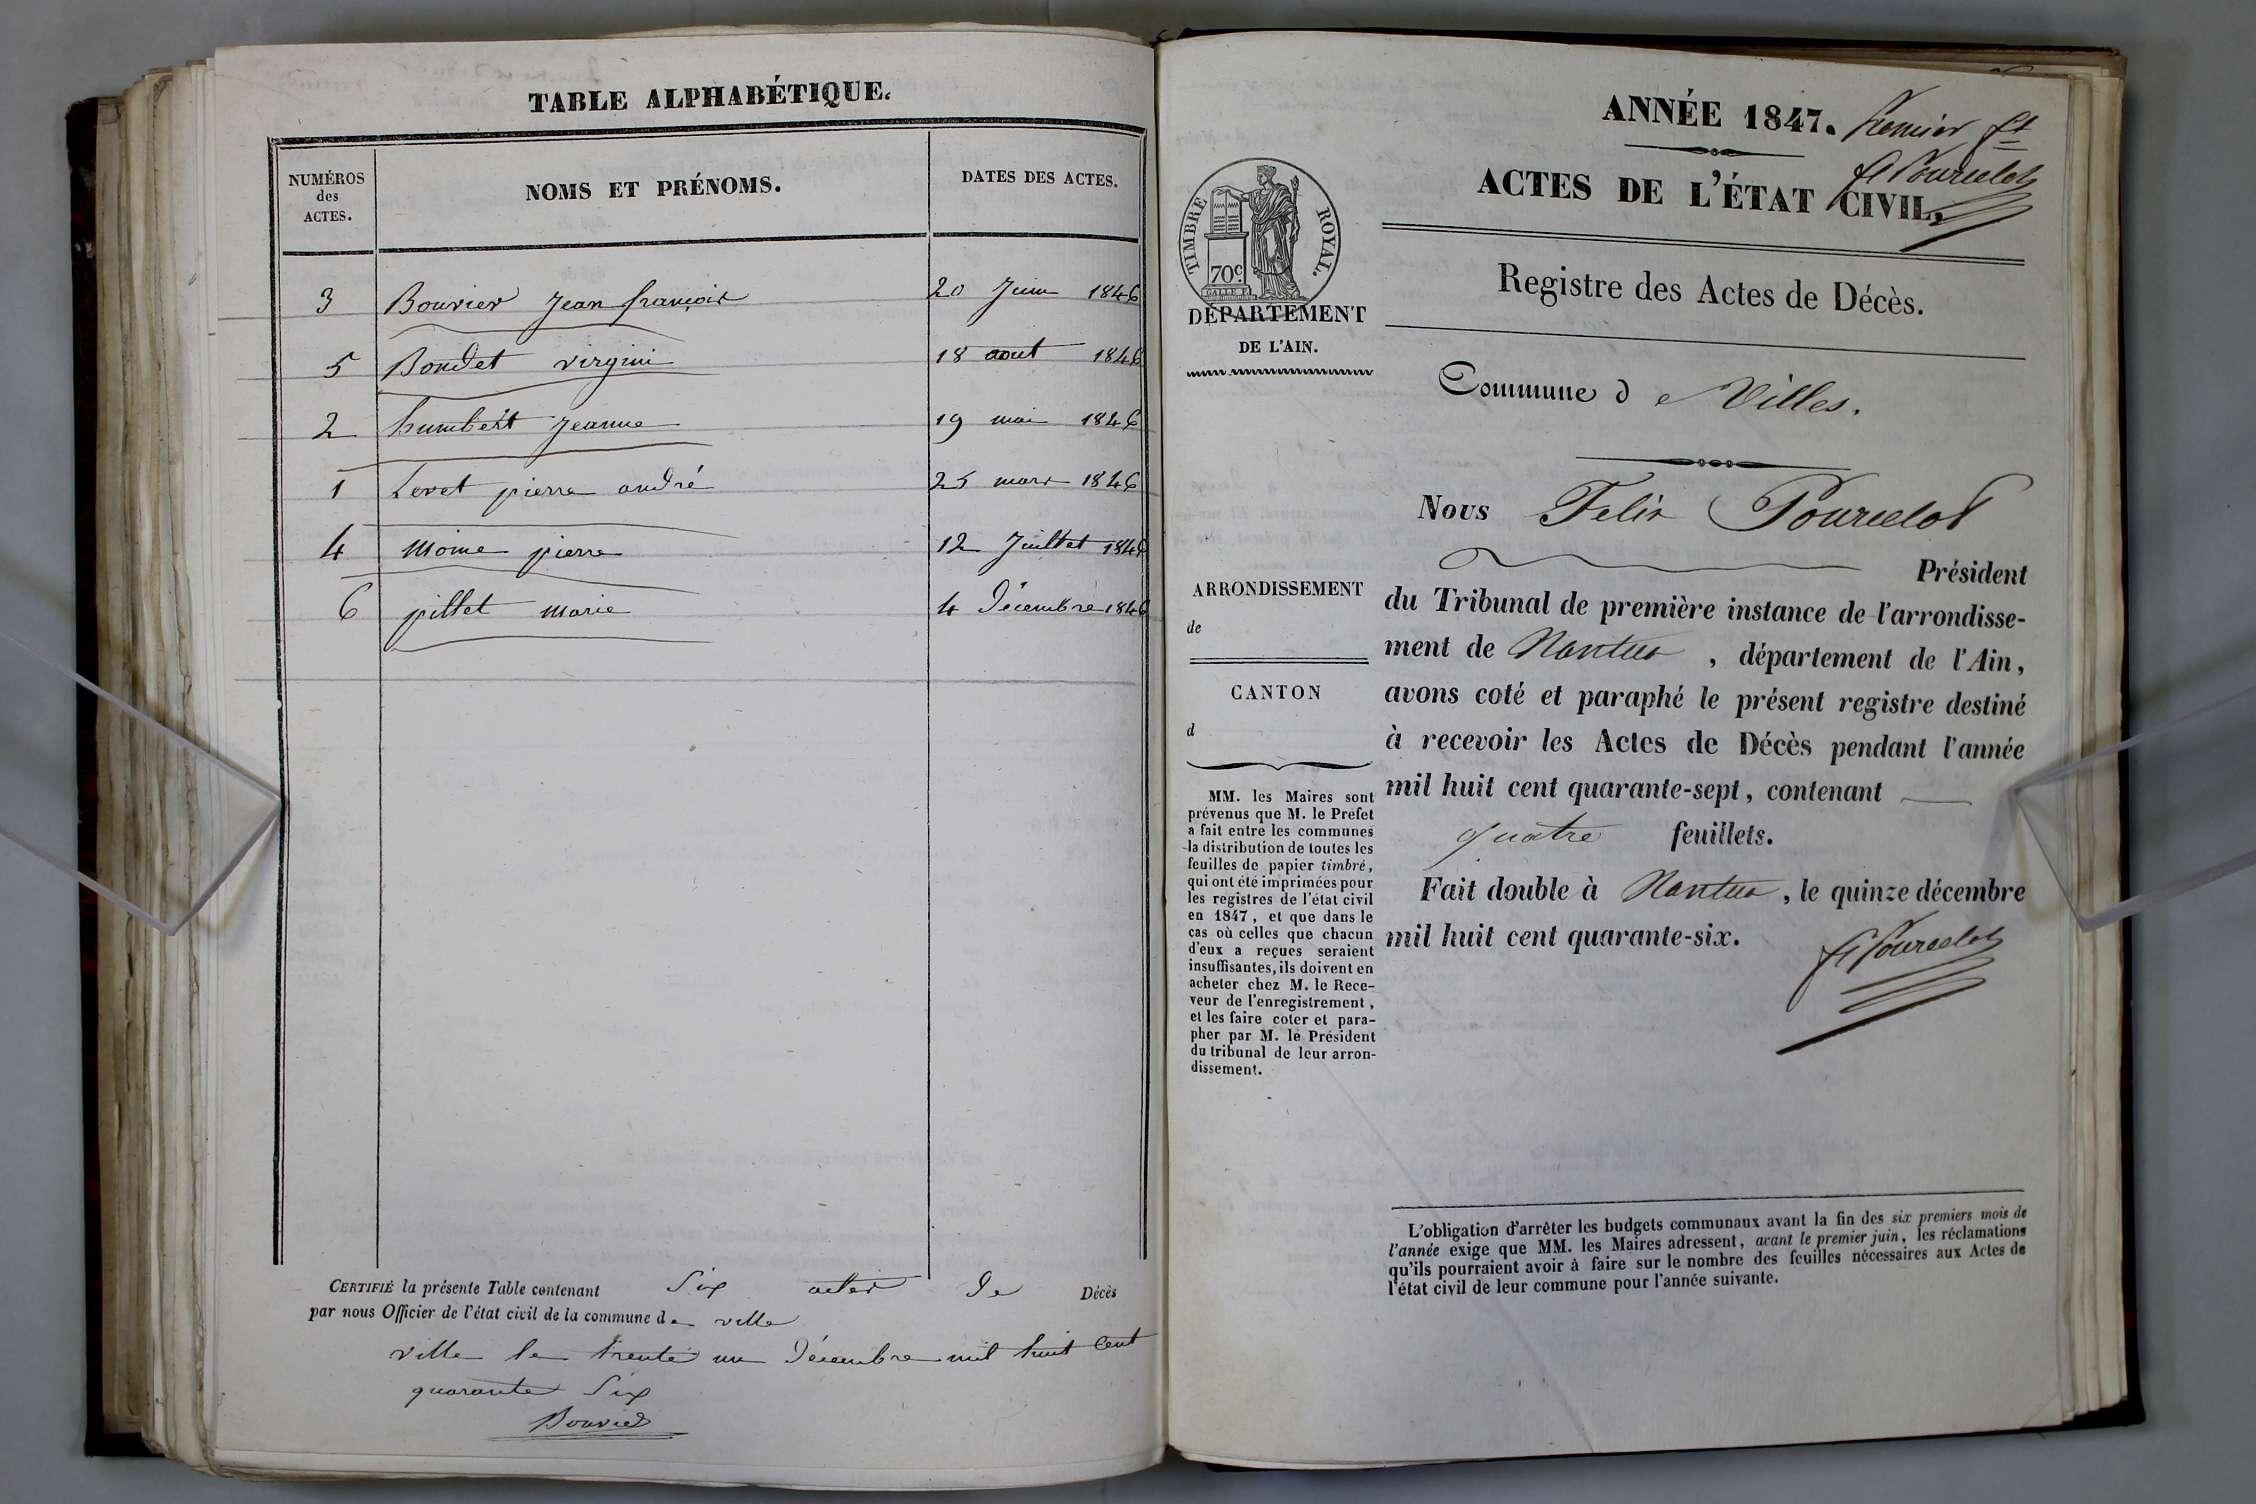 TABLE ALPHABÉTIQUE.
NUMÉROS
des
ACTES.
NOMS ET PRÉNOMS.
DATES DES ACTES.
3 Bouvier Jean françois 20 Juin 1846
5 Bondet virgini 18 aout 1846
2 humbért Jeanne 19 mai 1846
1 Levet pierre andré 25 mars 1846
4 moine pierre 12 Juillet 1846
6 pillet marie 4 Décembre 1846
CERTIFIÉ la présente Table contenant Six actes de Décès
par nous Officier de l'état civil de la commune de ville
ville le trente un Décembre mil huit Cent
quarante Six
Bouvier
ANNÉE 1847. Premier ft
fx Pourcelot
ACTES DE L'ÉTAT CIVIL.
TIMBRE ROYAL.
70c
DÉPARTEMENT
DE L'AIN.
Registre des Actes de Décès.
Commune de Villes.
Nous Felix Pourcelot
Président
du Tribunal de première instance de l'arrondisse-
ment de Nantua, département de l'Ain,
avons coté et paraphé le présent registre destiné
à recevoir les Actes de Décès pendant l'année
mil huit cent quarante-sept, contenant
quatre feuillets.
Fait double à Nantua, le quinze décembre
mil huit cent quarante-six.
fx Pourcelot
ARRONDISSEMENT
de
CANTON
d
MM. les Maires sont
prévenus que M. le Prefet
a fait entre les communes
la distribution de toutes les
feuilles de papier timbré,
qui ont été imprimées pour
les registres de l'état civil
en 1847, et que dans le
cas où celles que chacun
d'eux a reçues seraient
insuffisantes, ils doivent en
acheter chez M. le Rece-
veur de l'enregistrement,
et les faire coter et para-
pher par M. le Président
du tribunal de leur arron-
dissement.
L'obligation d'arrêter les budgets communaux avant la fin des six premiers mois de
l'année exige que MM. les Maires adressent, avant le premier juin, les réclamations
qu'ils pourraient avoir à faire sur le nombre des feuilles nécessaires aux Actes de
l'état civil de leur commune pour l'année suivante.